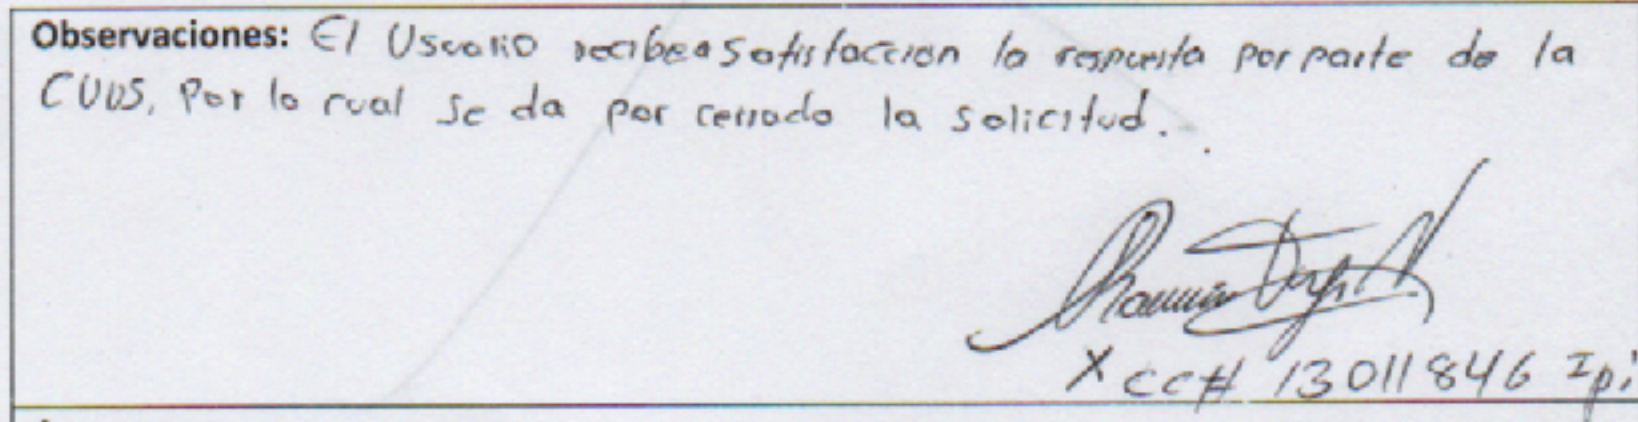 Observaciones: El Usuario recibe a satisfaccion la respuesta por parte de la
CUDS, Por lo cual se da por cerrado la solicitud.
X CC# 13011846 Ipi